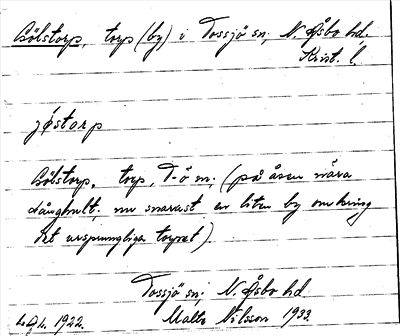 Bölstorp, torp (by) i Tossjö sn; N. Åsbo hd,
Krist. l.
jøstorp
Bölstorp, torp, T-ö sn; (på åsen nära
Långhult; nu snarast en liten by omkring
det ursprungliga torpet).
Tossjö sn; N. Åsbo hd
1922. Malte Nilsson 1933.